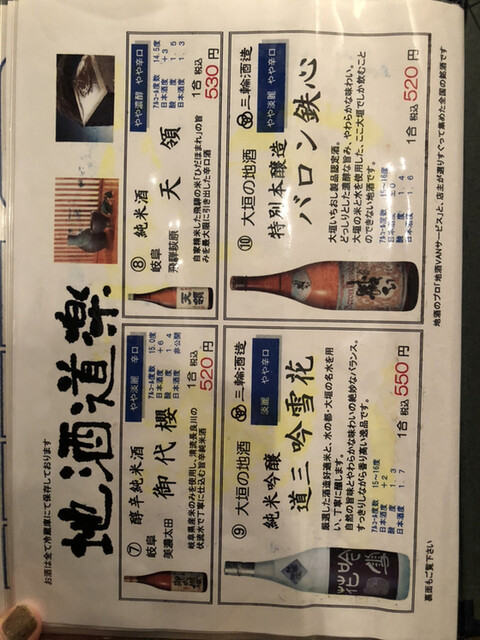 お酒は全て冷蔵庫にて保存しております
地酒道楽
⑦
岐阜
美濃太田
醇辛純米酒
御代櫻
やや淡麗 やや辛口
アルコール度数 15.0度
日本酒度 +6
酸度 1.4
日本酒度 非公開
1合 税込 520円
岐阜県産米のみを使用し、清流長良川の
伏流水で丁寧に仕込む旨辛純米酒
⑧
岐阜
飛騨萩原
純米酒
天領
やや濃醇 やや辛口
アルコール度数 14.5度
日本酒度 +3
酸度 1.5
日本酒度 1.3
1合 税込 530円
自家精米した飛騨の米「ひだほまれ」の旨
みを最大限に引き出した辛口酒
⑨
大垣の地酒
三輪酒造
純米吟醸
道三吟雪花
淡麗 やや辛口
厳選した酒造好適米と、水の都・大垣の名水を用
い、丁寧に醸します。
自然の旨味とやわらかな味わいの絶妙なバランス、
すっきりしながら香り高い逸品です。
アルコール度数 15〜16度
日本酒度 +2
酸度 1.3
日本酒度 1.7
1合 税込 550円
⑩
大垣の地酒
三輪酒造
特別本醸造
バロン鉄心
やや淡麗 やや辛口
大垣いちおし製品認定酒。
どっしりとした濃醇な旨み、やわらかな味わい。
大垣の米と水を使用した、ここ大垣でしか飲むこと
のできない地酒です。
アルコール度数 15〜16度
日本酒度 ±0
酸度 1.4
日本酒度 1.6
1合 税込 520円
地酒のプロ「地酒VANサービス」と、店主が選りすぐって集めた全国の銘酒です
裏面もご覧下さい